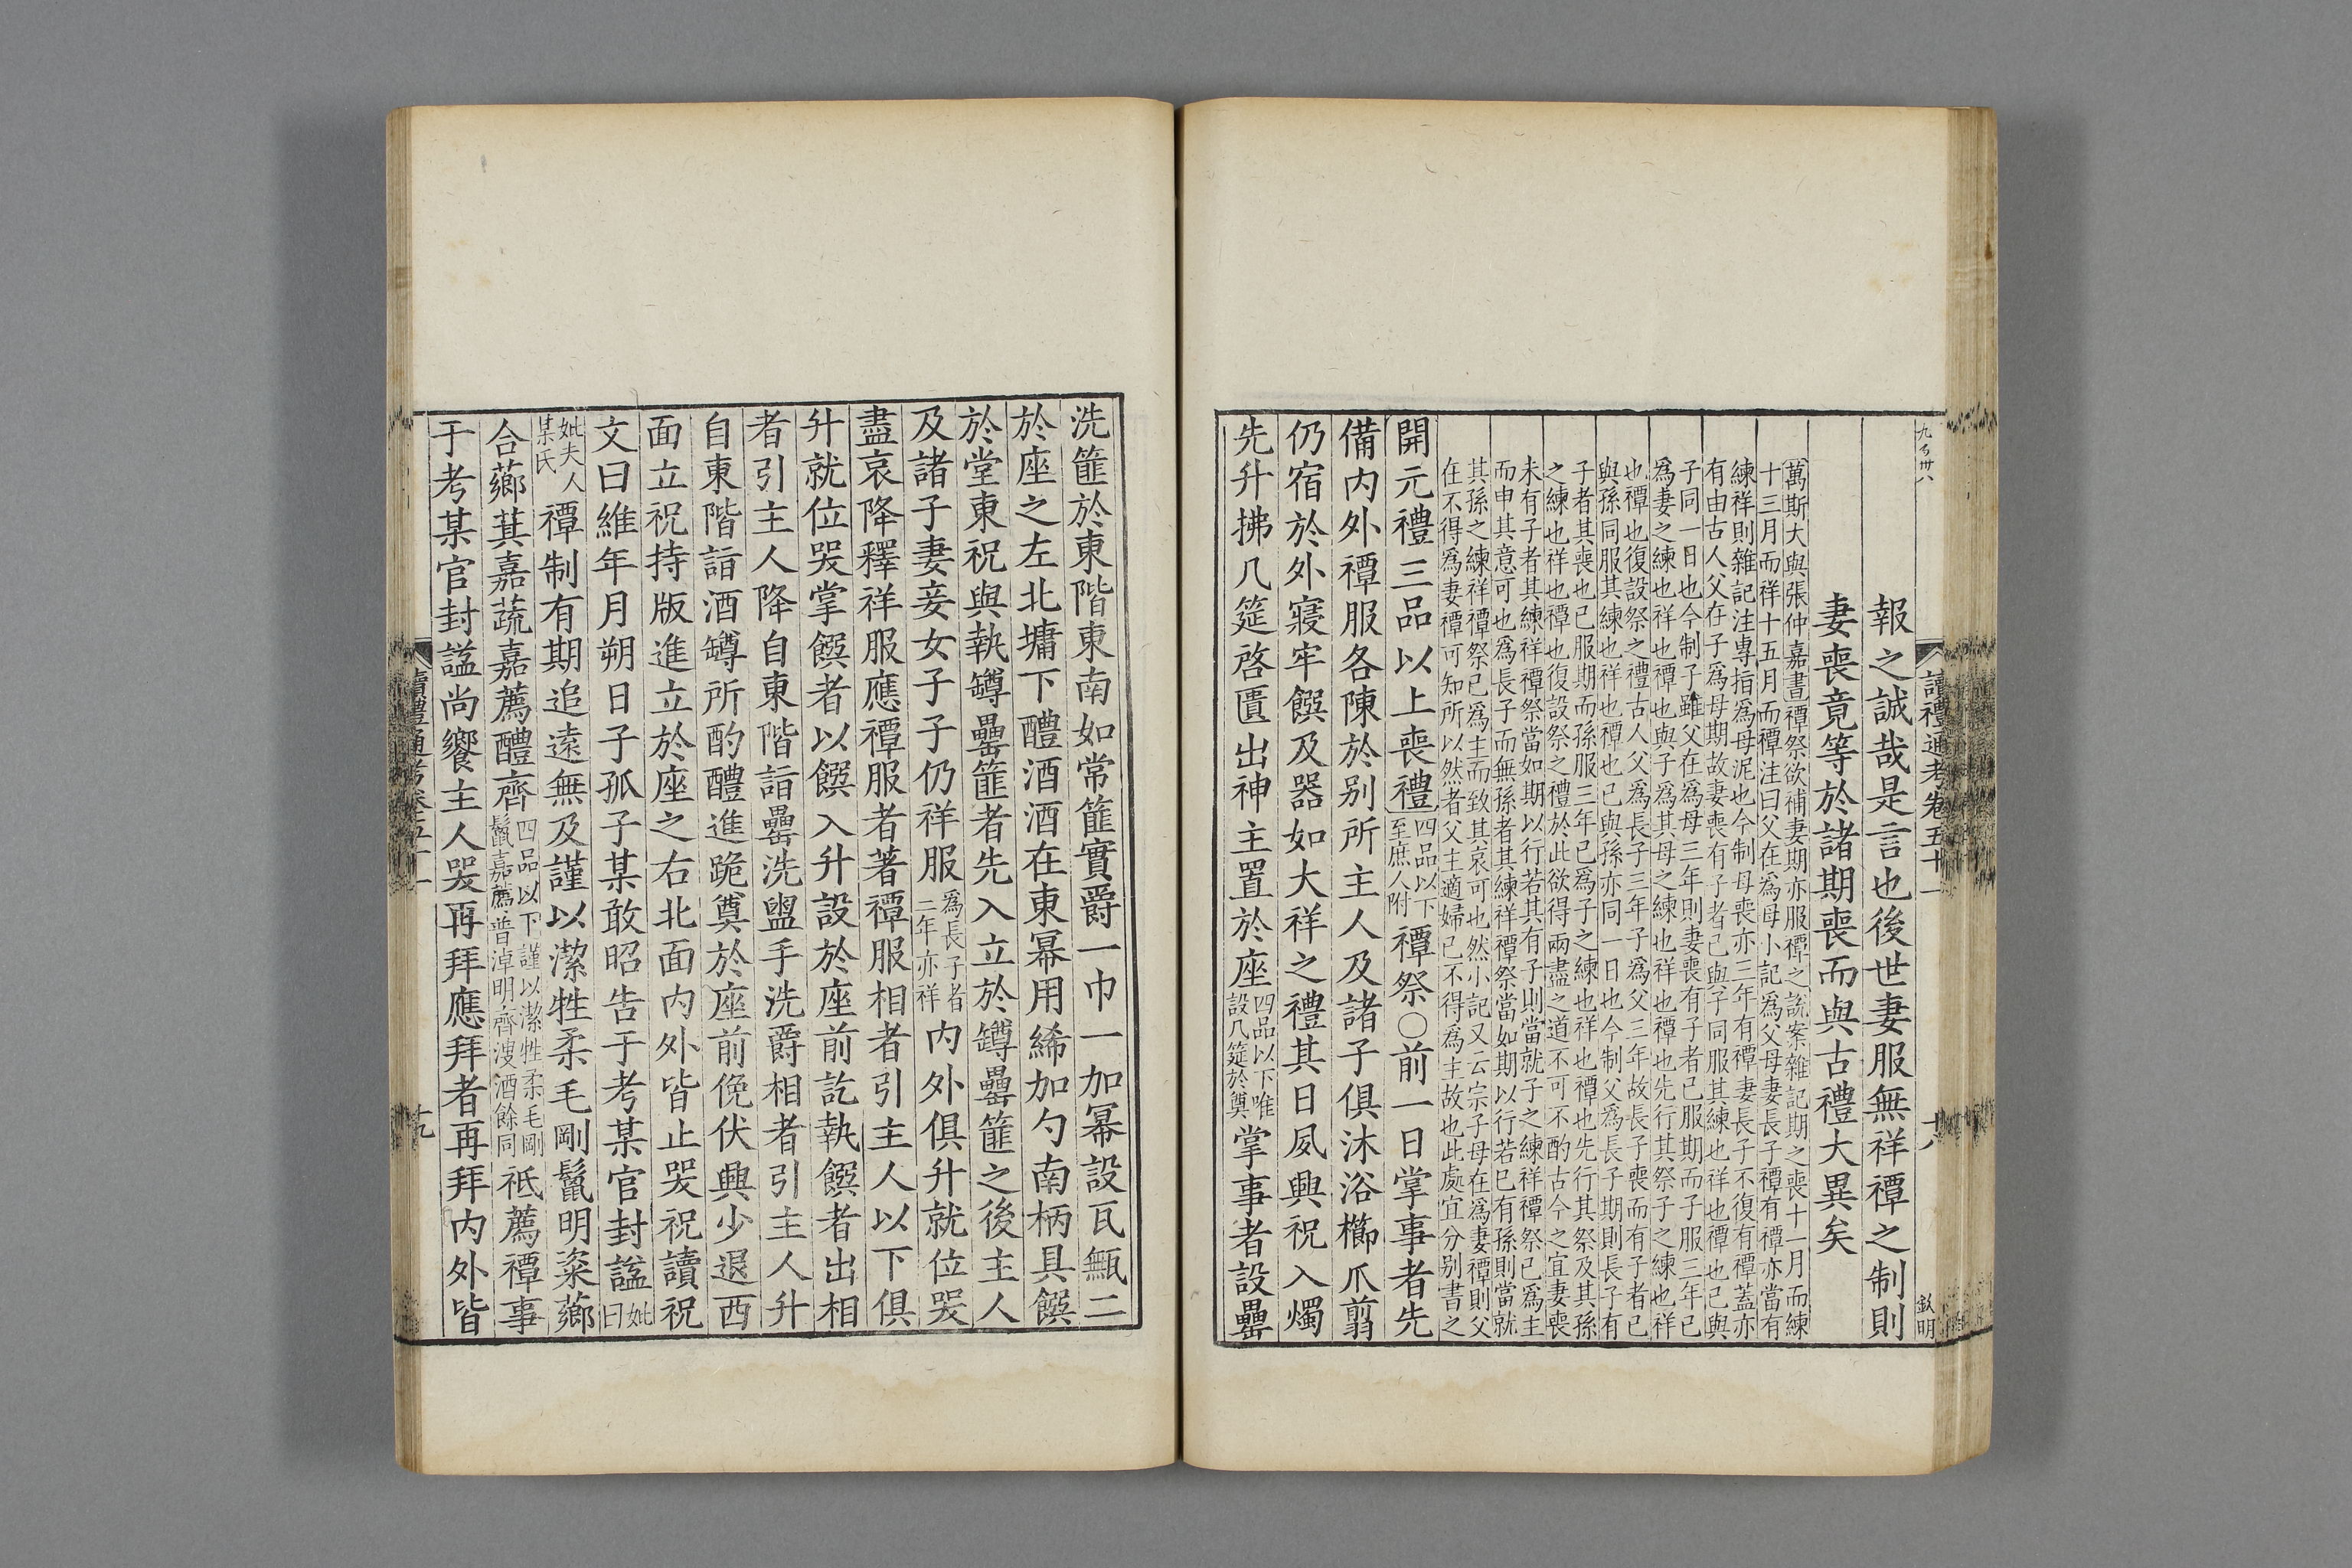 九百卅八
讀禮通考卷五十一
十八
欽明
報之誠哉是言也後世妻服無祥禫之制則
妻喪竟等於諸期喪而與古禮大異矣
萬斯大與張仲嘉書禫祭欲補妻期亦服禫之說案雜記期之喪十一月而練
十三月而祥十五月而禫注曰父在爲母小記爲父母妻長子禫有禫亦當有
練祥則雜記注專指爲母泥也今制母喪亦三年有禫妻長子不復有禫蓋亦
有由古人父在子爲母期故妻喪有子者己與子同服其練也祥也禫也己與
子同一日也今制子雖父在爲母三年則妻喪有子者己服期而子服三年已
爲妻之練也祥也禫也與子爲其母之練也祥也禫也先行其祭子之練也祥
也禫也復設祭之禮古人父爲長子三年子爲父三年故長子喪而有子者己
與孫同服其練也祥也禫也已與孫亦同一日也今制父爲長子期則長子有
子者其喪也已服期而孫服三年已爲子之練也祥也禫也先行其祭及其孫
之練也祥也禫也復設祭之禮於此欲得兩盡之道不可不酌古今之宜妻喪
未有子者其練祥禫祭當如期以行若其有子則當就子之練祥禫祭已爲主
而申其意可也爲長子而無孫者其練祥禫祭當如期以行若已有孫則當就
其孫之練祥禫祭已爲主而致其哀可也然小記又云宗子母在爲妻禫則父
在不得爲妻禫可知所以然者父主適婦已不得爲主故也此處宜分别書之
開元禮三品以上喪禮四品以下至庶人附禫祭○前一日掌事者先
備内外禫服各陳於别所主人及諸子俱沐浴櫛爪翦
仍宿於外寢牢饌及器如大祥之禮其日夙興祝入燭
先升拂几筵啓匱出神主置於座四品以下唯設几筵於奠掌事者設罍
洗篚於東階東南如常篚實爵一巾一加冪設瓦甒二
於座之左北墉下醴酒酒在東冪用綌加勺南柄具饌
於堂東祝與執罇罍篚者先入立於罇罍篚之後主人
及諸子妻妾女子子仍祥服爲長子者二年亦祥内外俱升就位哭
盡哀降釋祥服應禫服者著禫服相者引主人以下俱
升就位哭掌饌者以饌入升設於座前訖執饌者出相
者引主人降自東階詣罍洗盥手洗爵相者引主人升
自東階詣酒罇所酌醴進跪奠於座前俛伏興少退西
面立祝持版進立於座之右北面内外皆止哭祝讀祝
文曰維年月朔日子孤子某敢昭告于考某官封諡妣曰
妣夫人某氏禫制有期追遠無及謹以潔牲柔毛剛鬣明粢薌
合薌萁嘉蔬嘉薦醴齊四品以下謹以潔牲柔毛剛鬣嘉薦普淖明齊溲酒餘同祗薦禫事
于考某官封諡尚饗主人哭再拜應拜者再拜内外皆
讀禮通考卷五十一
十九